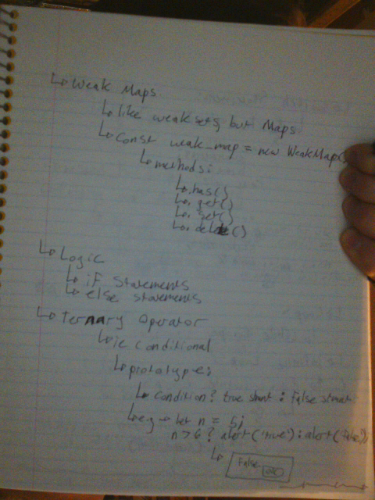 ↳ Weak Maps
↳ like weak sets, but Maps
↳ const weak_map = new WeakMap
↳ methods:
↳ .has()
↳ .get()
↳ .set()
↳ .delete()
↳ Logic
↳ if statements
↳ else statements
↳ Ternary Operator
↳ ie. conditional
↳ prototype:
↳ condition ? true stmt : false stmt
↳ eg → let n = 5;
n > 6 ? alert('true') : alert('false')
↳ False